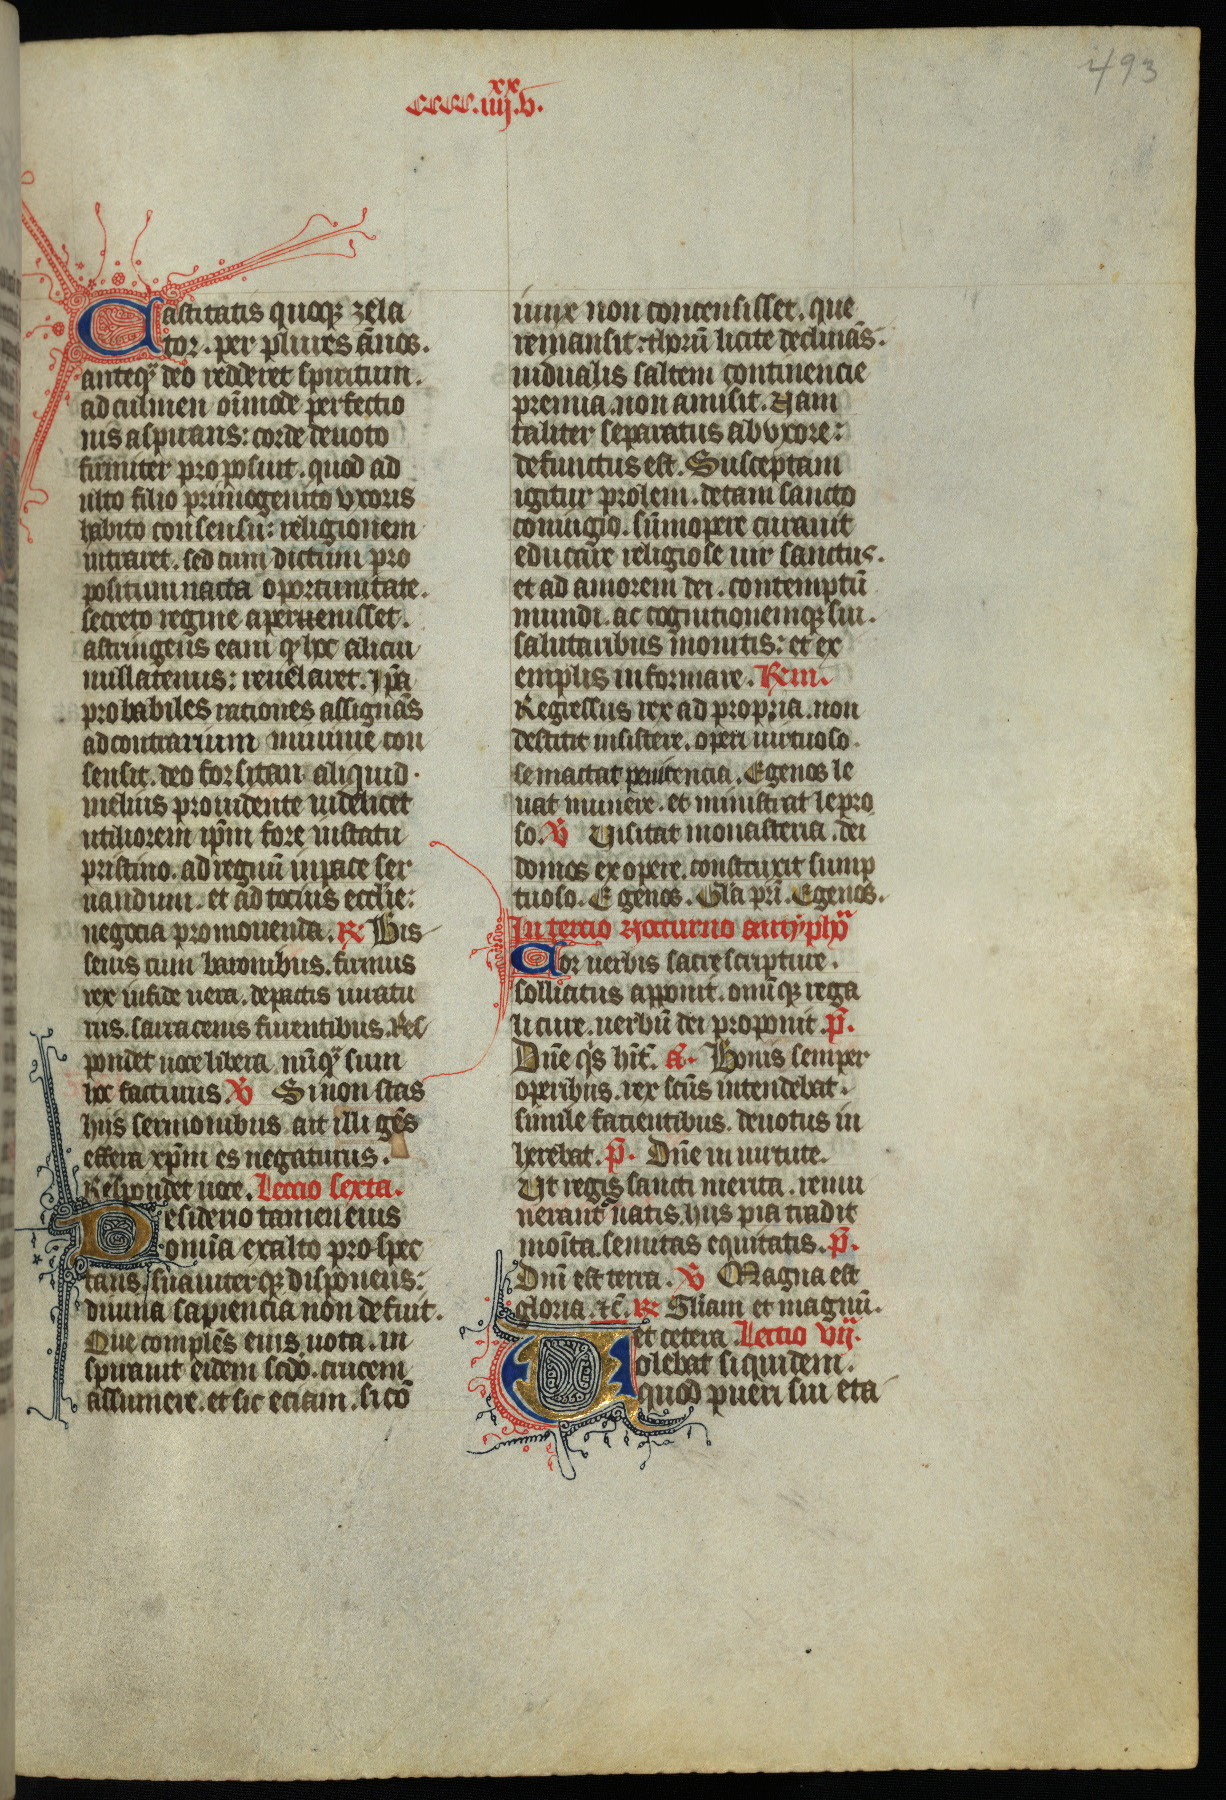 493
xx
CCCC.iiij.v.
Castitatis quoq; zela
tor. per plures ānos.
anteq̄ deo redderet spiritum.
ad culmen oīmode perfectio
nis aspirans: corde deuoto
firmiter proposuit. quod ad
ulto filio primogenito vxoris
habito consensu: religionem
intraret. sed cum dictum pro
positum nacta oportunitate.
secreto regine aperuenisset.
astringens eam q̄ hoc alicui
nullatenus: reuelaret. Ip̄a
probabiles rationes assignās
ad contrarium minime con
sensit. deo forsitan aliquid.
melius prouidente uidelicet
utiliorem ip̄m fore in statu
pristino. ad regnū in pace ser
uandum. et ad tocius ecclīe:
negocia promouenda. R Bis
senis cum baronibus. firmus
rex in fide uera. de pactis iuratu
rus. sarracenis furentibus. Res
pondet uoce libera nūq̄ sum
hoc facturus V Si non stas
hiis sermonibus ait illi gēs
effera xp̄m es negaturus.
Respondet uoce. Leccio sexta.
Desiderio tamen eius
omīa ex alto prospec
tans suauiterq; disponens:
diuina sapiencia non defuit.
Que complēs eius uota. in
spirauit eidem scd̄o. crucem
assumere. et sic eciam. si cō
iunx non concensisset. que
remansit: thorū licite declinās.
uidualis saltem continencie
premia. non amisit. Nam
taliter separatus ab vxore:
defunctus est. Susceptam
igitur prolem. de tam sancto
coniugio. sūmopere curauit
educare religiose uir sanctus.
et ad amorem dei. contemptū
mundi. ac cognitionemq; sui.
salutaribus monitis: et ex
emplis informare. Rem.
Regressus rex ad propria. non
destitit insistere. operi uirtuoso.
se mactat penitencia. Egenos le
uat munere. et ministrat lepro
so. V Uisitat monasteria. dei
domos ex opere. construxit sump
tuoso. Egenos. Gl̄a pr̄i. Egenos.
In tercio nocturno antyphō
Cor uerbis sacre scripture.
sollicitus apponit. omīq; rega
li cure. uerbū dei proponit. p̄.
Dn̄e q̄s hīt. A. Bonis semper
operibus. rex scūs intendebat.
simile facientibus. deuotus in
herebat. p̄. Dn̄e in uirtute.
Ut regis sancti merita. remu
nerant natis. hiis pia tradit
monīta. semitas equitatis. p̄.
Dn̄i est terra. V Magna est
gloria. ⁊c̄. R Gl̄iam et magnū.
et cetera. Lectio vij.
Uolebat siquidem.
quod pueri sui eta